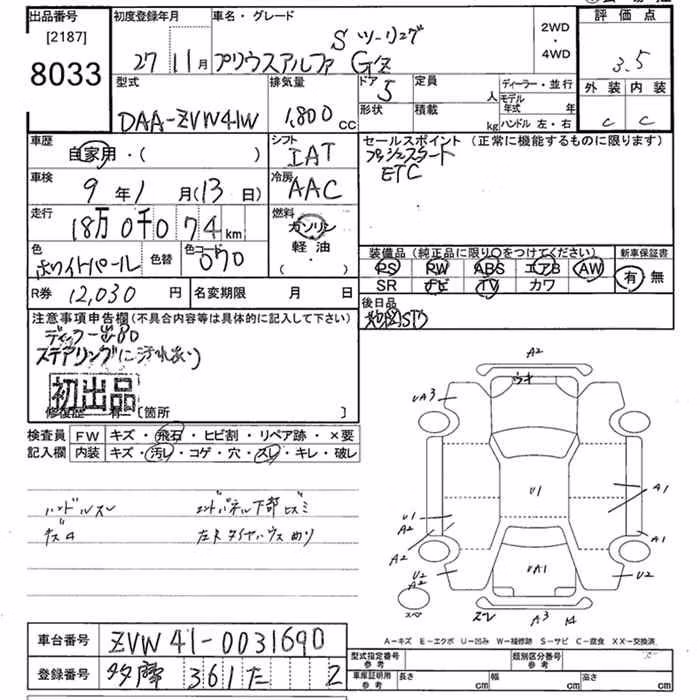 出品番号 初度登録年月 車名・グレード 2WD・4WD 評価点
[2187]
8033
27 11月 プリウスアルファ S ツーリング G's
3.5
型式 排気量 ドア 5 定員 人 ディーラー・並行 外装 内装
DAA-ZVW41W 1,800 cc 形状 積載 kg モデル年式 年
ハンドル 左・右 C C
車歴 自家用・( ) シフト IAT セールスポイント (正常に機能するものに限ります)
プッシュスタート
ETC
車検 9年1月(13日) 冷房 AAC
走行 18万0千074km 燃料 ガソリン
軽油
・( )
色 ホワイトパール 色替 色コード 070
装備品(純正品に限り○をつけてください) 新車保証書
PS PW ABS エアB AW 有 無
SR ナビ TV カワ
R券 12,030円 名変期限 月 日 後日品
注意事項申告欄(不具合内容等は具体的に記入して下さい)
ステアリングに汚れあり
初出品
修復歴 有 [箇所 ]
検査員 FW キズ・飛石・ヒビ割・リペア跡・×要
記入欄 内装 キズ・汚レ・コゲ・穴・スレ・キレ・破レ
ハンドルスレ
A2
UA3
U1
A1
U1
A2
A2
A1
U2
A2
UA1
U2
A3
A-キズ E-エクボ U-凹み W-補修跡 S-サビ C-腐食 XX-交換済
車台番号 ZVW41-0031690
登録番号 多摩 361 た 2
型式指定番号 参考 類別区分番号 参考
車庫証明用 参考 長さ cm 幅 cm 高さ cm